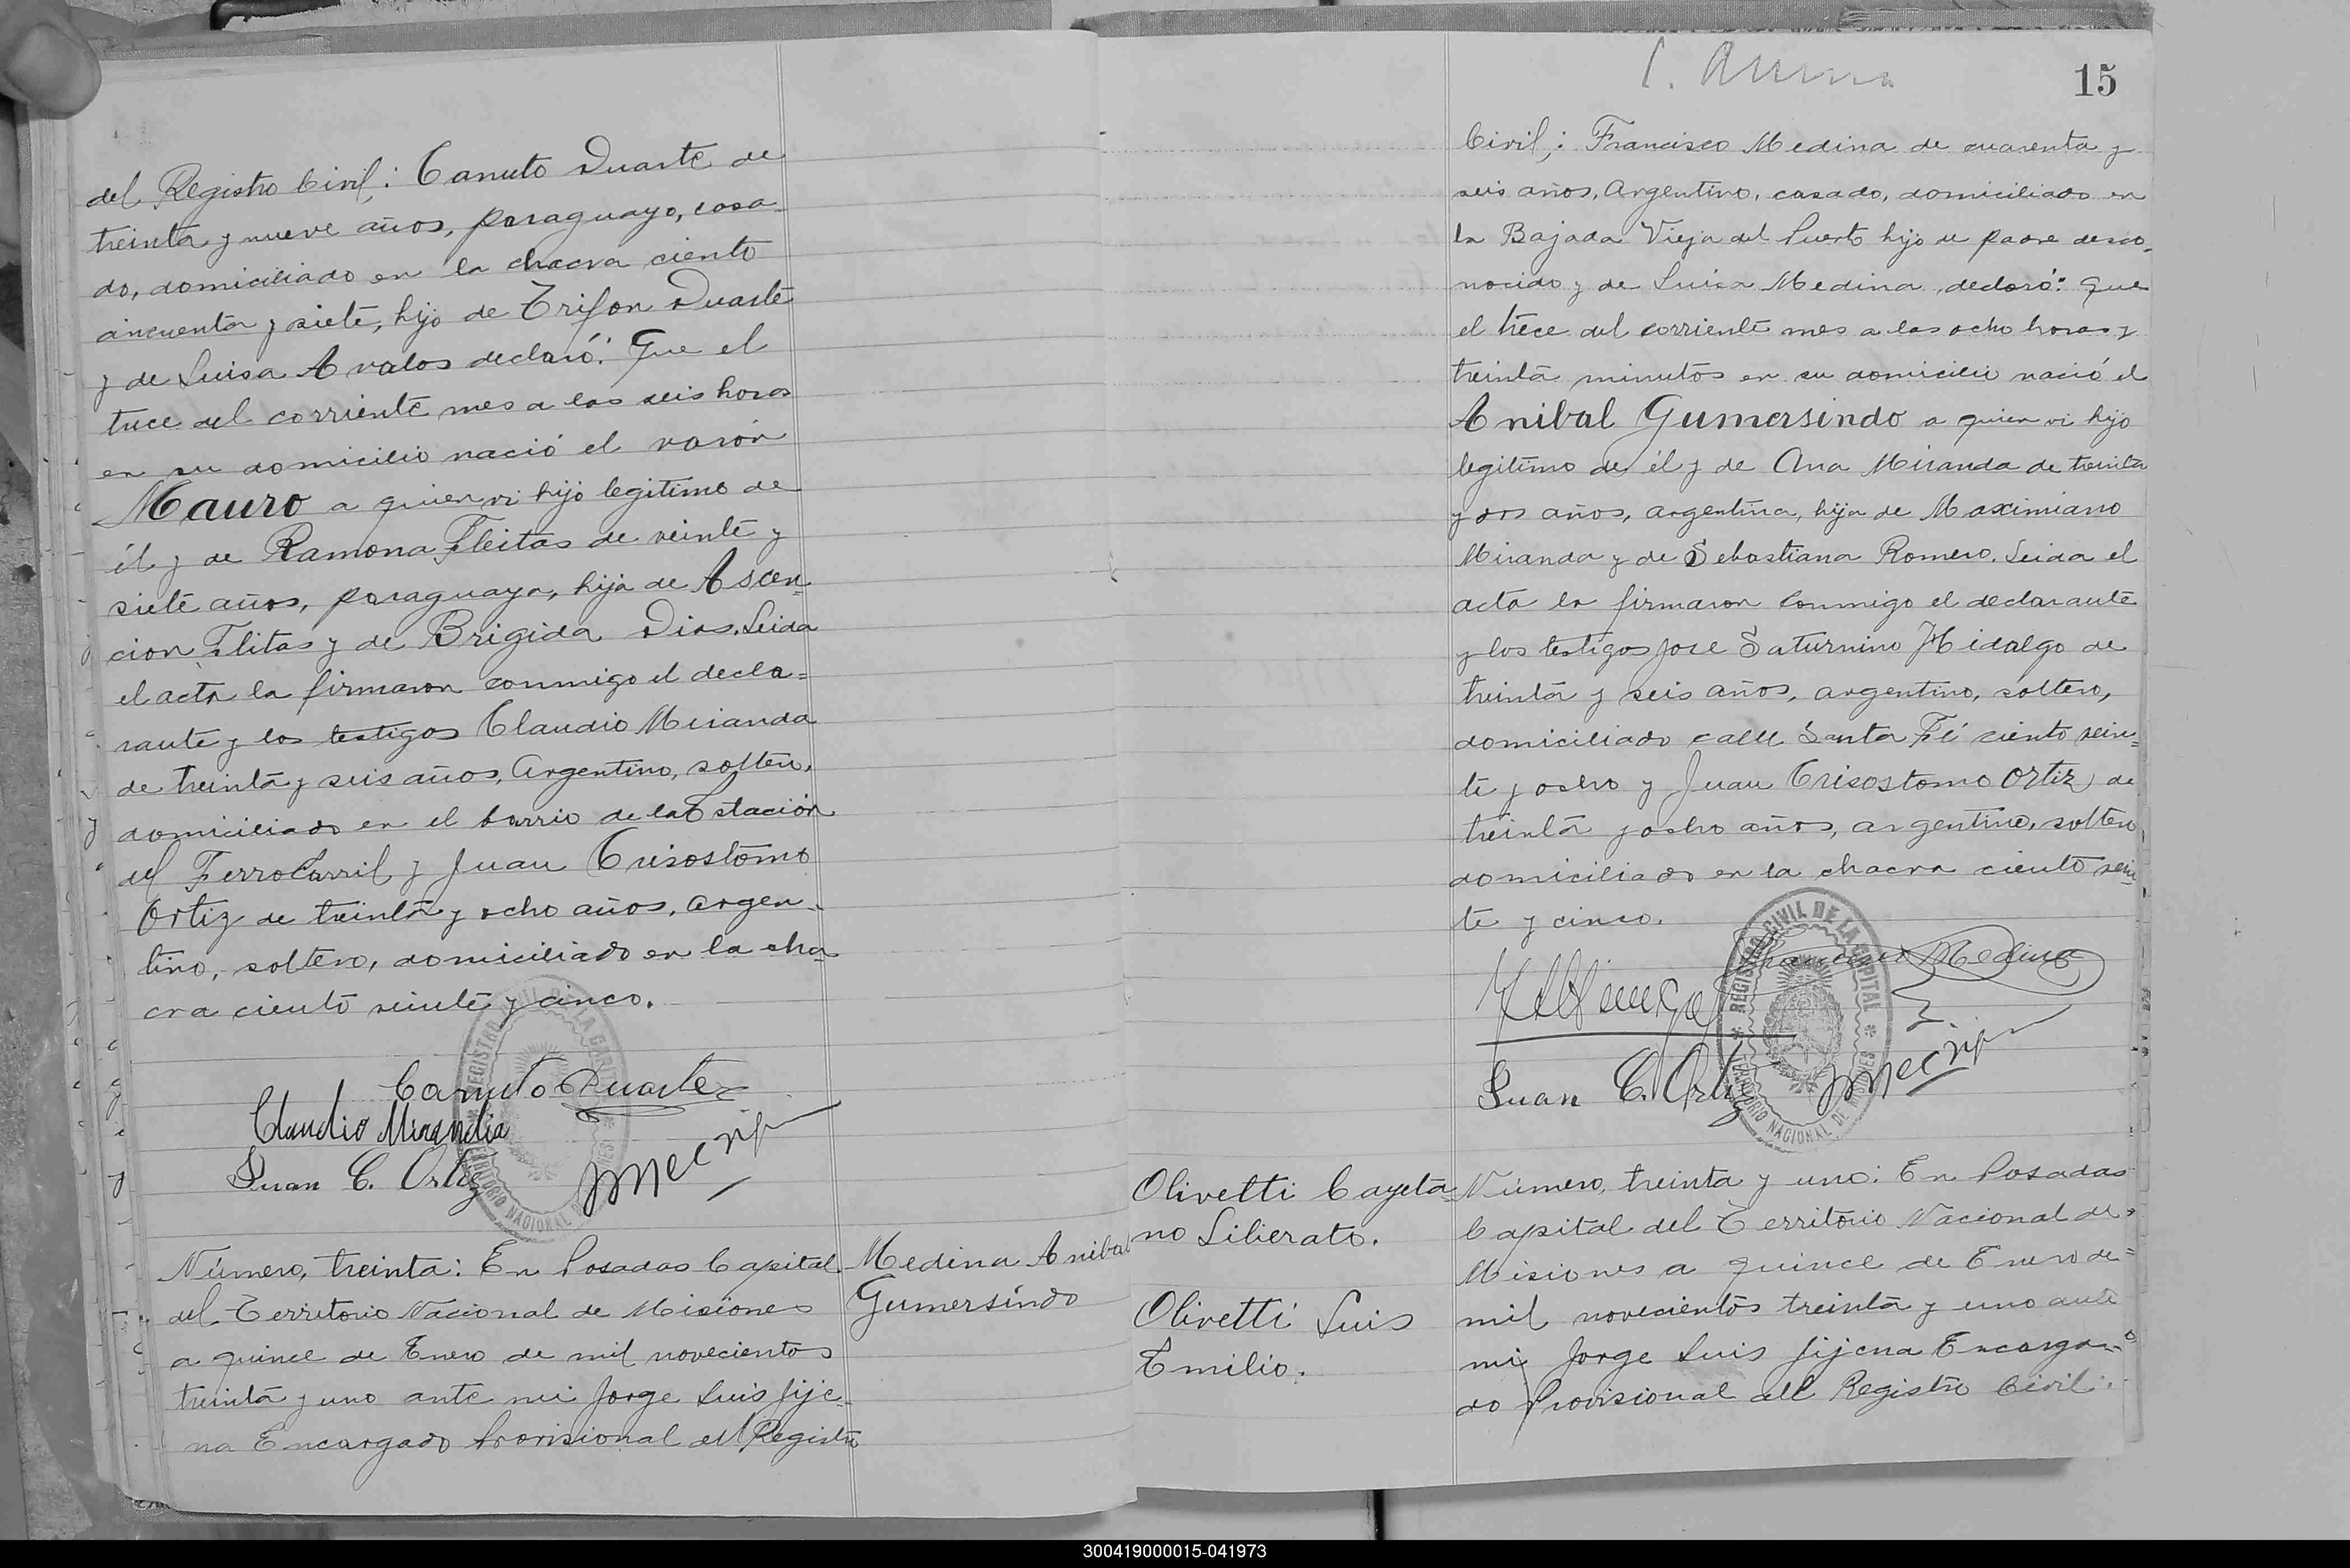 del Registro Civil; Canuto Duarte de
treinta y nueve años, paraguayo, casa-
do, domiciliado en la chacra ciento
cincuenta y siete, hijo de Trifon Duarte
y de Luisa Avalos declaró: Que el
trece del corriente mes a las seis horas
en su domicilio nació el varón
Mauro a quien vi hijo legitimo de
él y de Ramona Fleitas de veinte y
siete años, paraguaya, hija de Ascen-
cion Flitas y de Brigida Dias. Leida
el acta la firmaron conmigo el decla=
rante y los testigos Claudio Miranda
de treinta y seis años, Argentino, soltero,
domiciliado en el barrio de la Estación
del FerroCarril y Juan Crisostomo
Ortiz de treinta y ocho años, argen-
tino, soltero, domiciliado en la cha-
cra ciento veinte y cinco.
REGISTRO CIVIL DE LA CAPITAL
TERRITORIO NACIONAL DE MISIONES
Canuto Duarte
Claudio Miranda
Juan C. Ortiz
Número, treinta: En Posadas Capital
del Territorio Nacional de Misiones
a quince de Enero de mil novecientos
treinta y uno ante mi Jorge Luis Jije-
na Encargado Provisional del Registro
Medina Anibal
Gumersindo
15
Civil; Francisco Medina de cuarenta y
seis años, Argentino, casado, domiciliado en
la Bajada Vieja del Puerto hijo de padre desco-
nocido y de Luisa Medina, declaró: Que
el trece del corriente mes a las ocho horas y
treinta minutos en su domicilio nació el
Anibal Gumersindo a quien vi hijo
legitimo de él y de Ana Miranda de treinta
y dos años, argentina, hija de Maximiano
Miranda y de Sebastiana Romero. Leida el
acta la firmaron conmigo el declarante
y los testigos Jose Saturnino Hidalgo de
treinta y seis años, argentino, soltero,
domiciliado calle Santa Fé ciento vein=
te y ocho y Juan Crisostomo Ortiz de
treinta y ocho años, argentino, soltero
domiciliado en la chacra ciento vein-
te y cinco.
REGISTRO CIVIL DE LA CAPITAL
TERRITORIO NACIONAL DE MISIONES
Francisco Medina
Juan C. Ortiz
Olivetti Cayeta-
no Liberato.
Olivetti Luis
Emilio.
Número, treinta y uno: En Posadas
Capital del Territorio Nacional de
Misiones a quince de Enero de=
mil novecientos treinta y uno ante
mi Jorge Luis Jijena Encarga-
do Provisional del Registro Civil:
300419000015-041973